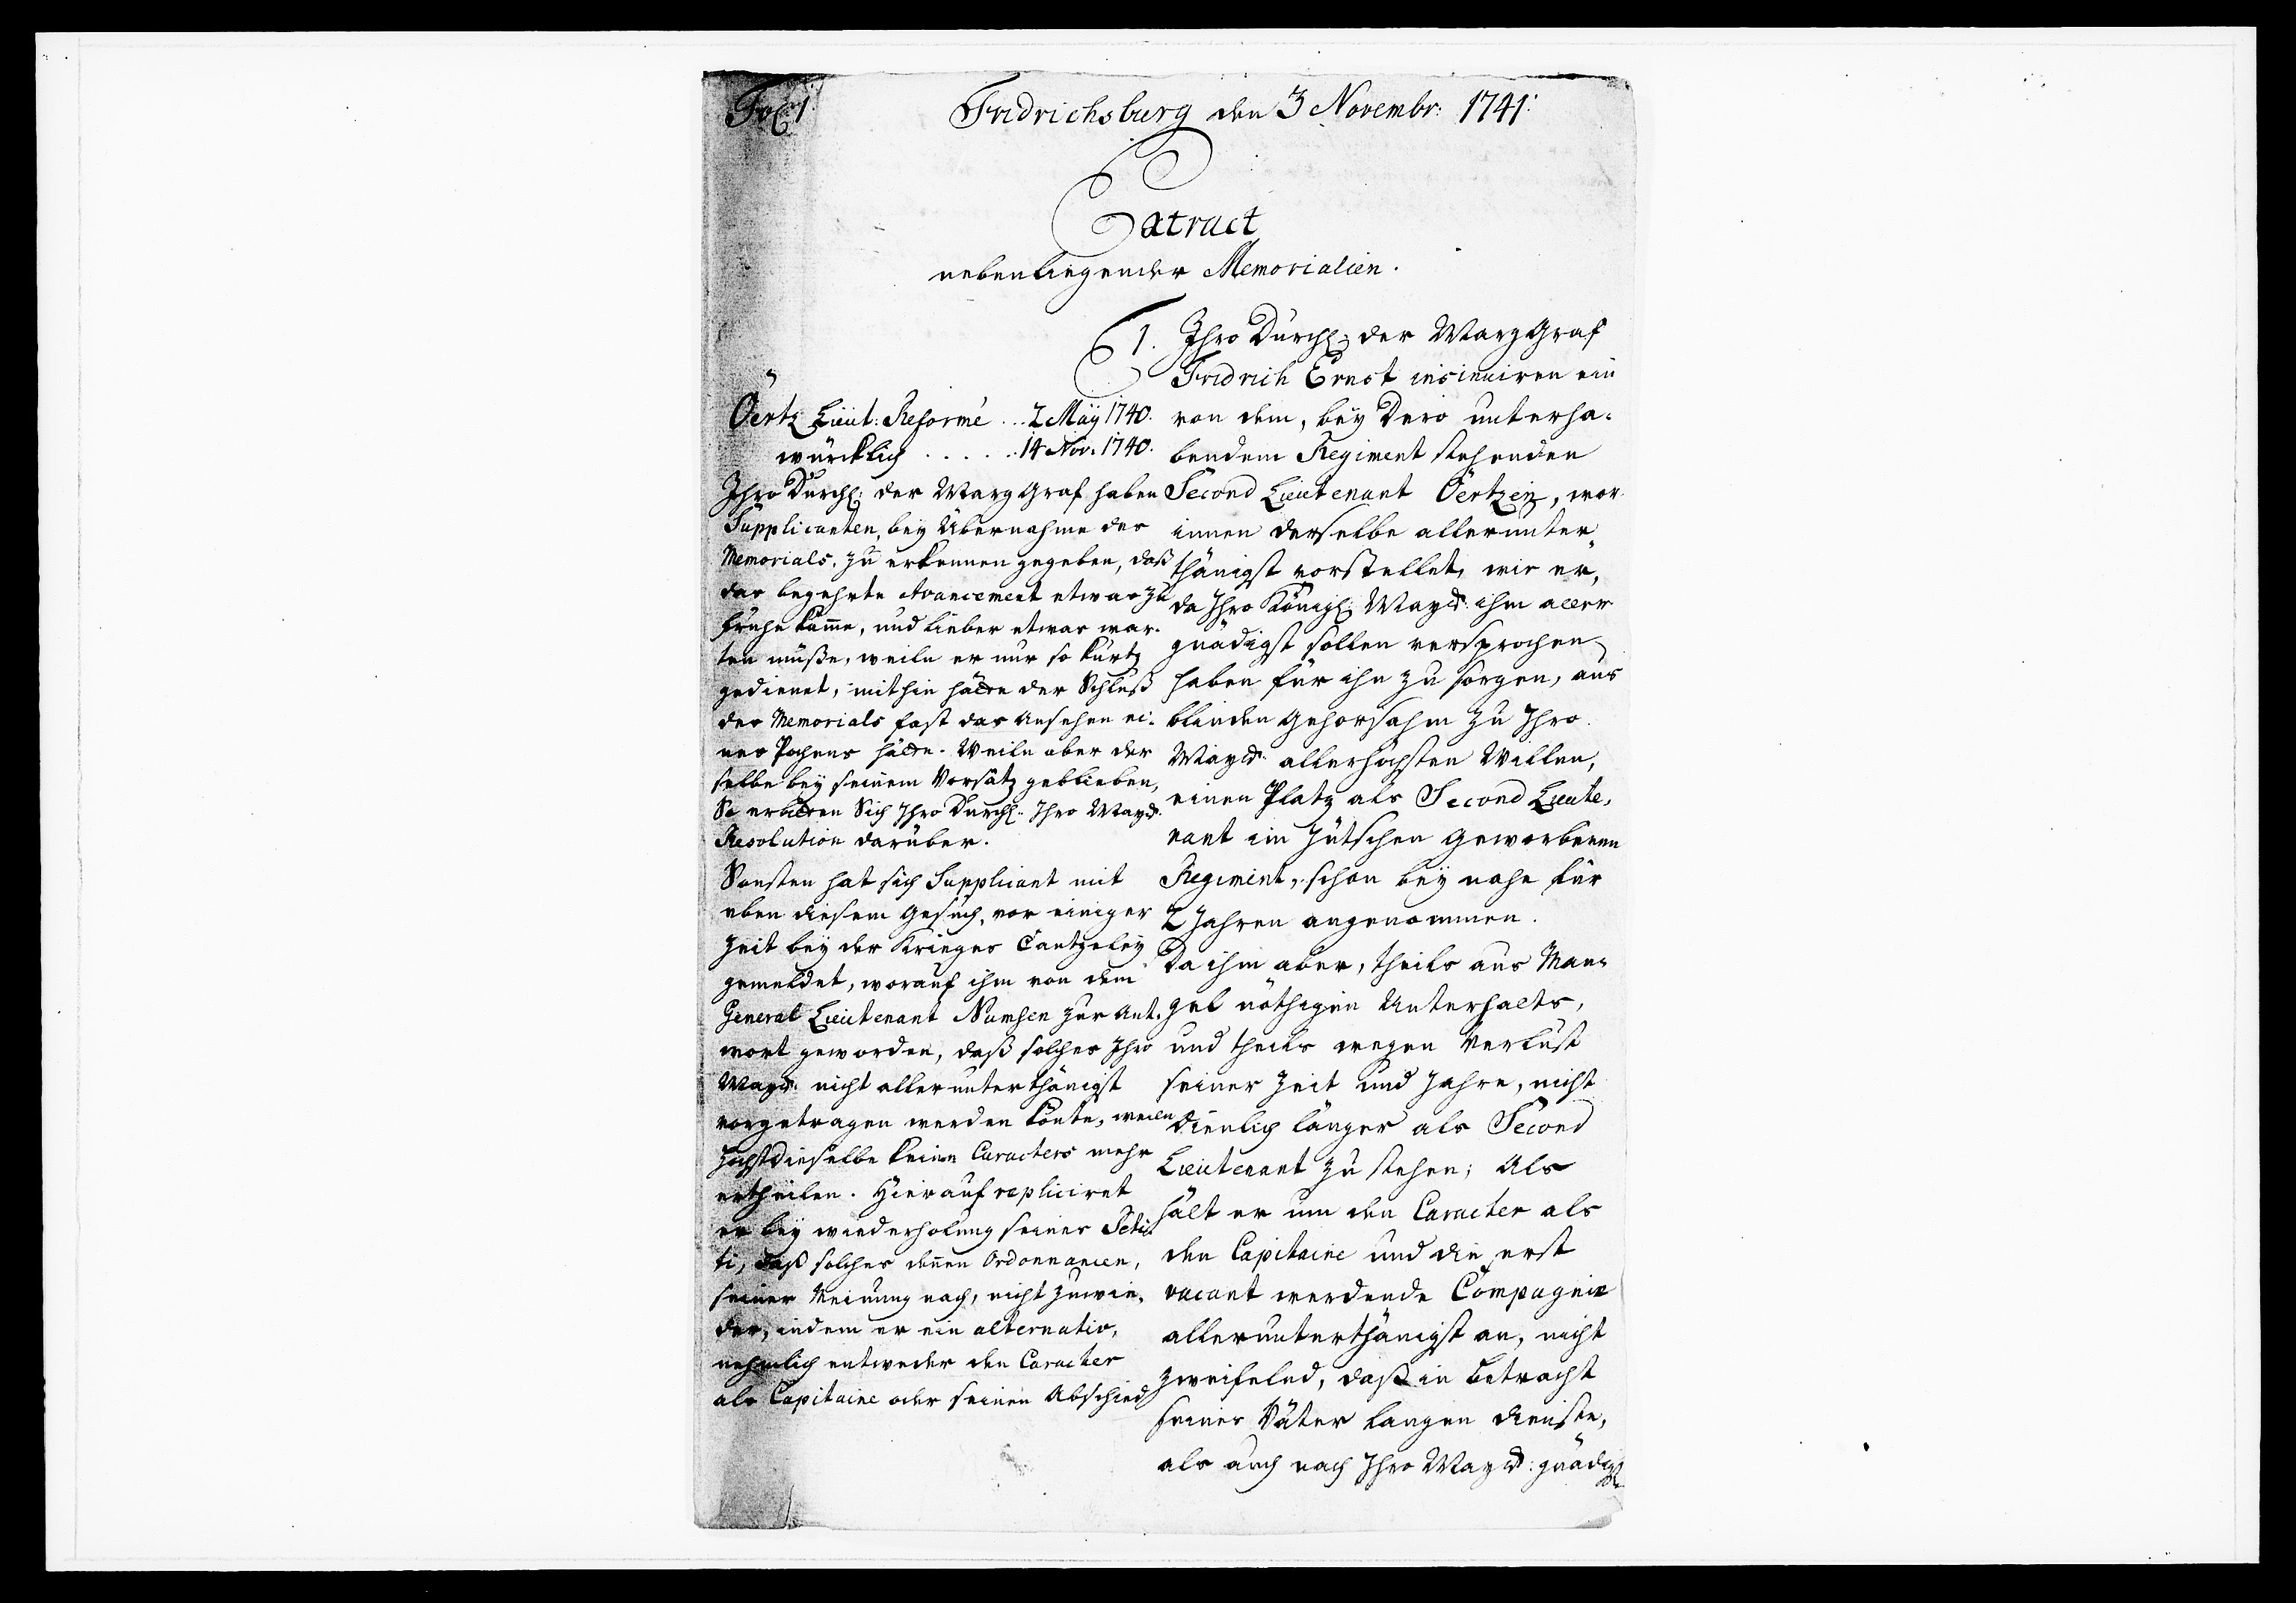 Fridrichsburg den 3 Novembr: 1741:
Extract
nebenliegender Memorialien.
1. Ihro Durchl: der MargGraf
Fridrich Ernst insinuiren ein
von dem, bey Dero unterha-
bendem Regiment stehenden
Second Lieutenant Öertzen, wor
innen derselbe allerunter-
thänigst vorstellet, wie er,
da Ihro Königl: Mayst: ihm aller
gnädigst sollen versprochen
haben für ihn zu sorgen, aus
blinden Gehorsahm zu Ihro
Mayst: allerhöchsten Willen,
einen Platz als Second Lieute-
nant im Jütschen Geworbenen
Regiment, schon bey nahe für
2 Jahren angenommen.
Da ihm aber, theils aus Man-
gel nöthigen Unterhalts,
und theils wegen Verlust
seiner Zeit und Jahre, nicht
dienlich länger als Second
Lieutenant zu stehen; Als
hält er um den Caracter als
den Capitaine und die erst
vacant werdende Compagnie
allerunterthänigst an, nicht
zweifelnd, daß in Betracht
seines Väter langen Dienste,
als auch nach Ihro Mayst: gnädigst
Öertz Lieut: Reformé ... 2 May 1740.
würcklich . . . . . 14 Nov. 1740.
Ihro Durchl: der MargGraf haben
Supplicanten, bey Übernahme des
Memorials, zu erkennen gegeben, daß
das begehrte Avancement etwas zu
frühe käme, und lieber etwas war-
ten müße, weiln er nur so kurtz
gedienet, mithin hätte der Schluß
des Memorials fast das Ansehen ei-
nes Pochens hätte. Weiln aber der
selbe bey seinem Vorsatz geblieben,
So erbitten Sich Ihro Durchl: Ihro Mayst:
Resolution darüber.
Sonsten hat sich Supplicant mit
eben diesem Gesuch, vor einiger
Zeit bey der Krieges Cantzeley
gemeldet, worauf ihm von dem
General Lieutenant Numsen zur Ant-
wort geworden, daß solches Ihro
Mayst: nicht allerunterthänigst
vorgetragen werden könte, weiln
Höchstdieselbe keine Caracters mehr
ertheilen. Hierauf repliciret
er bey wiederholung seines Peti-
ti, daß solches denen Ordonnancen,
seiner Meinung nach, nicht zuwie-
der, indem er ein alternativ,
nehmlich entweder den Caracter
als Capitaine oder seinen Abschied